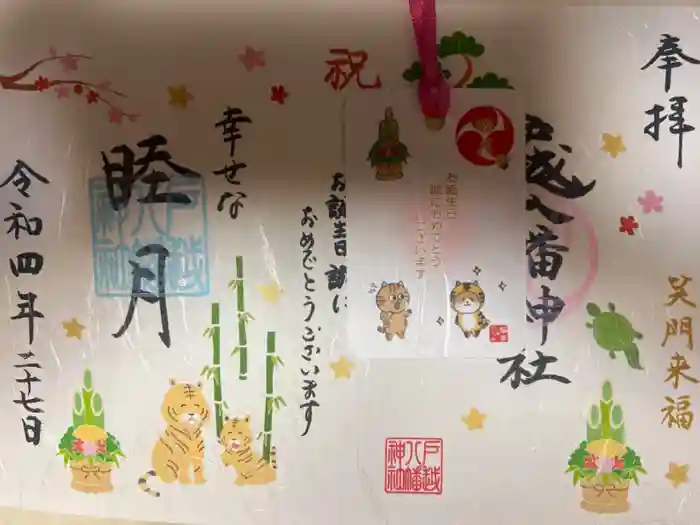 奉拝
笑門来福
戸越八幡神社
祝
お誕生日
誠におめでとう
ございます
お誕生日誠に
おめでとうございます
幸せな
睦月
令和四年二十七日
戸越
八幡
神社
戸越
八幡
神社